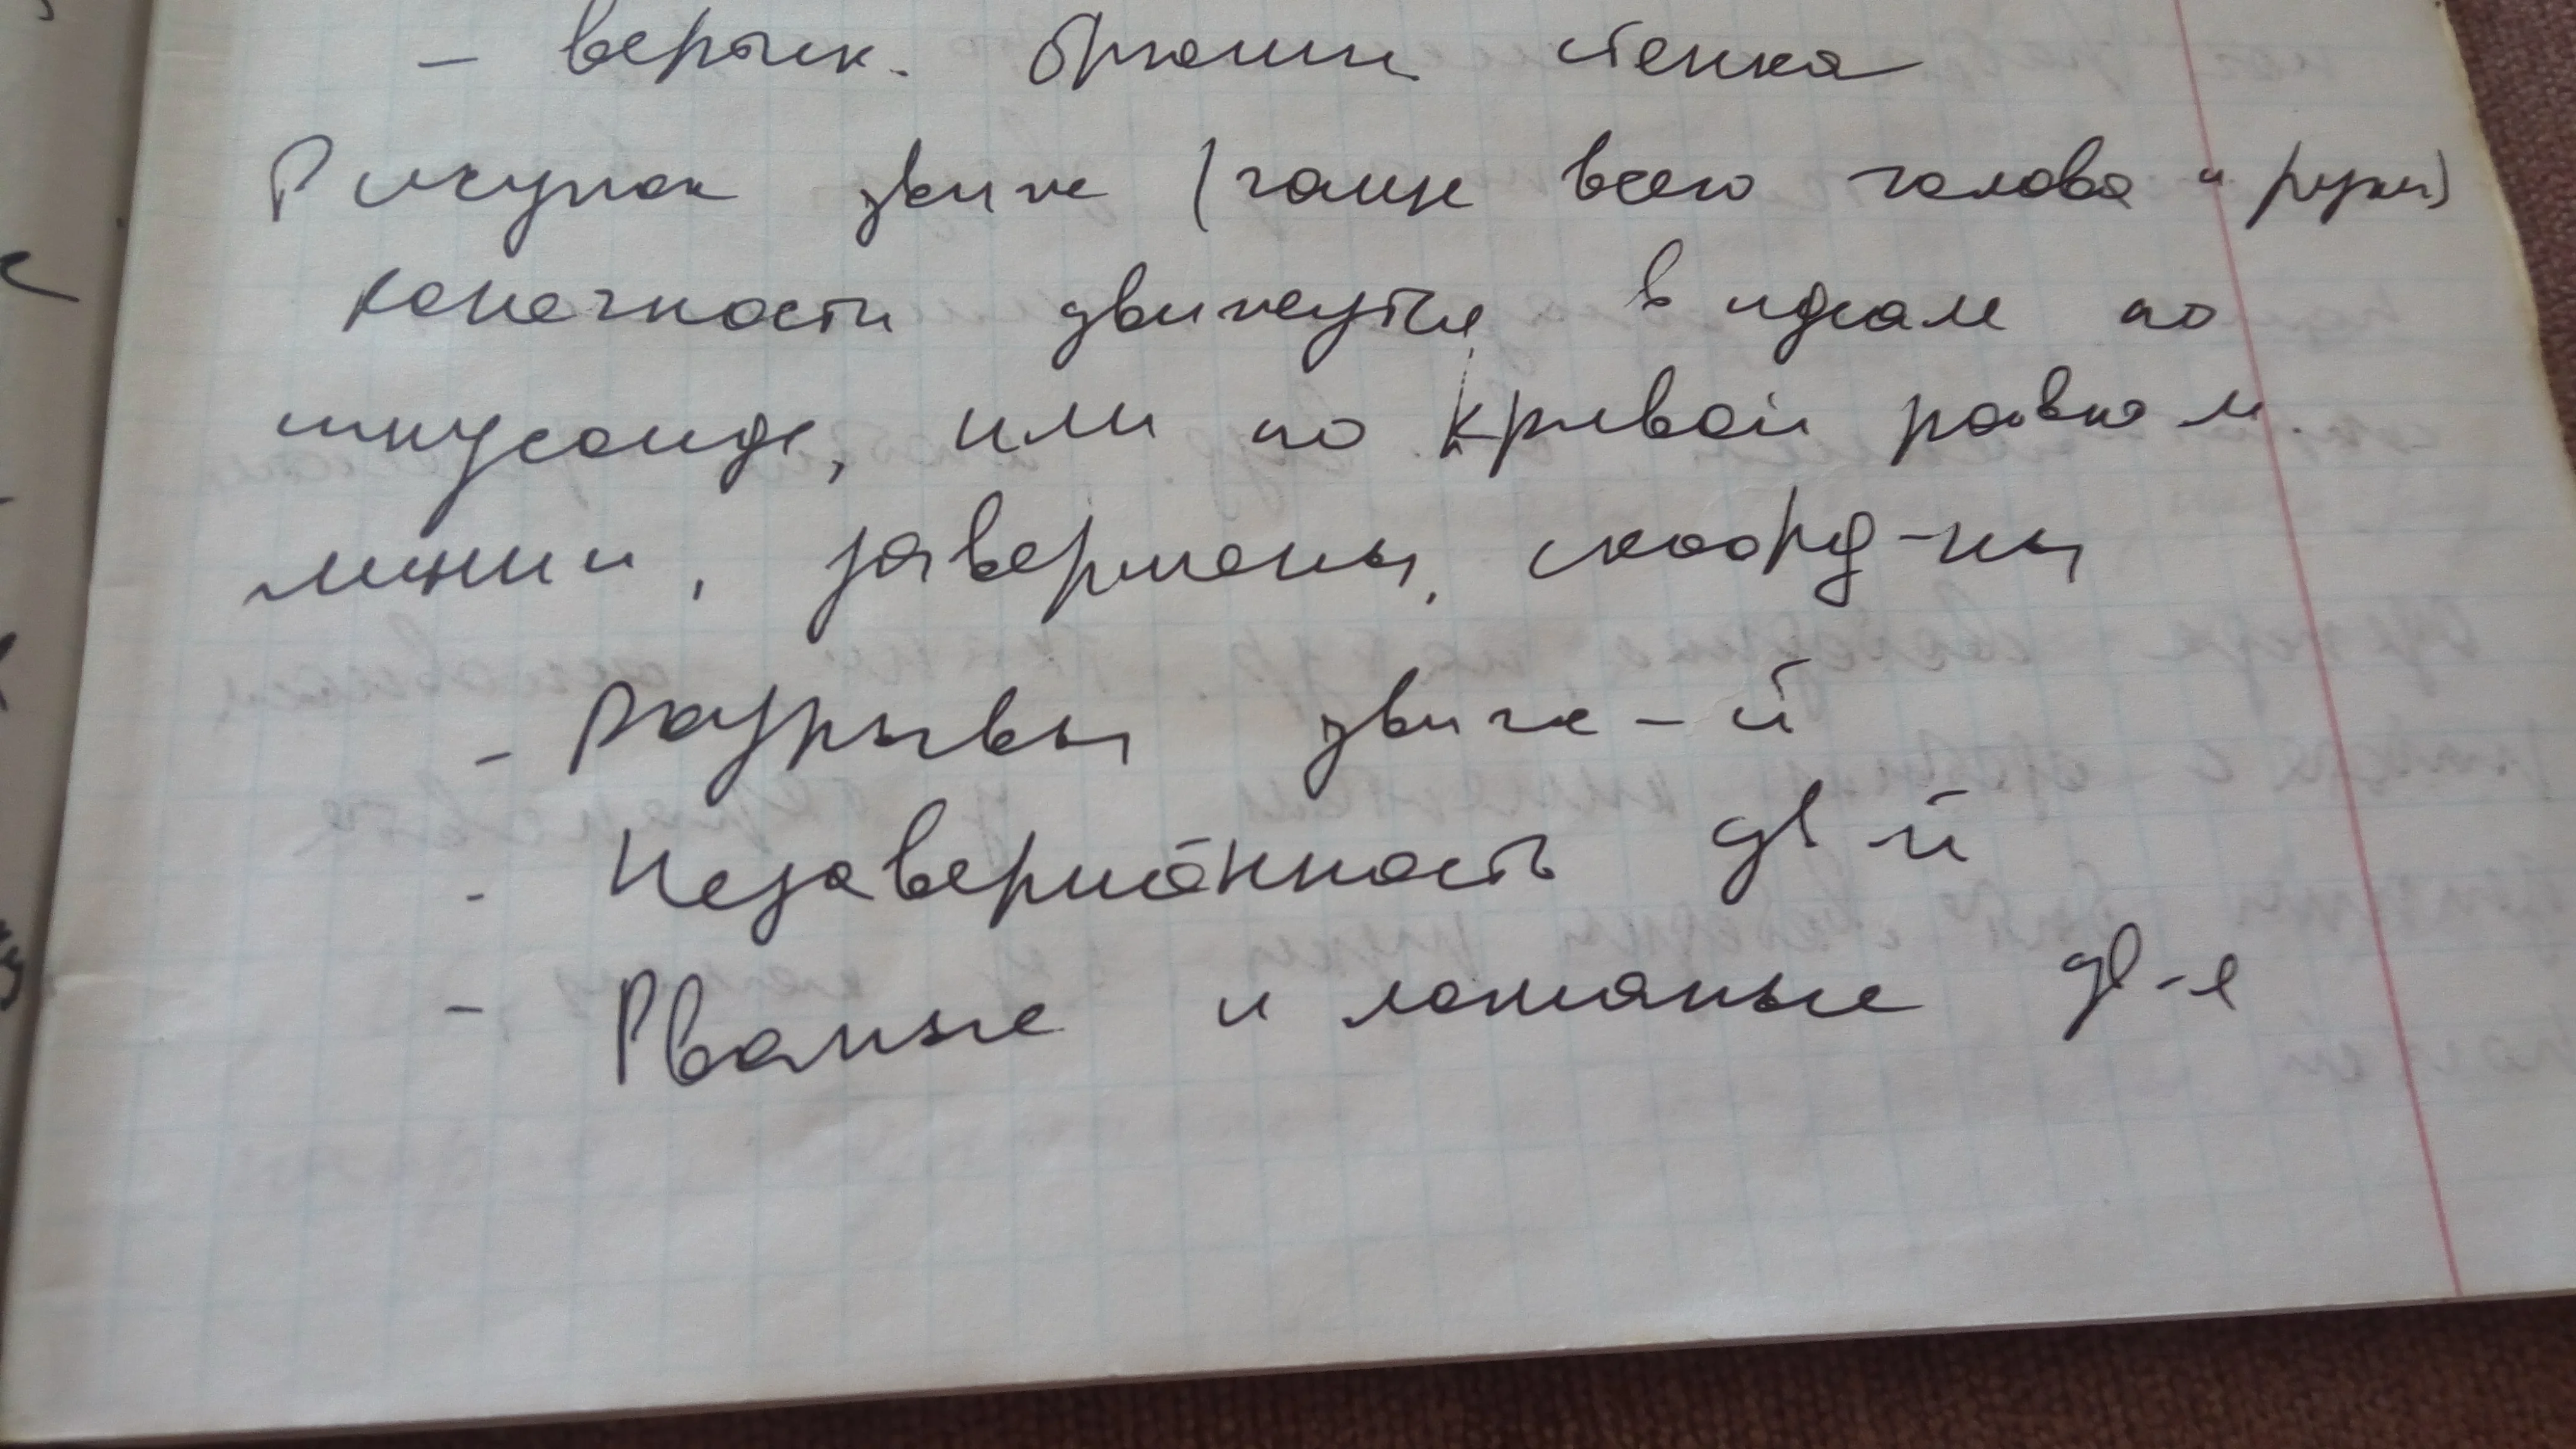 - вертик. брюшн стенка
Рисунок движ (чаще всего голова и руки)
конечности движутся в идеале по
синусоиде, или по кривой равном
линии, завершены, скоорд-ны
- Разрывы движе-й
- Незавершённость дв-й
- Рваные и ломаные дв-е